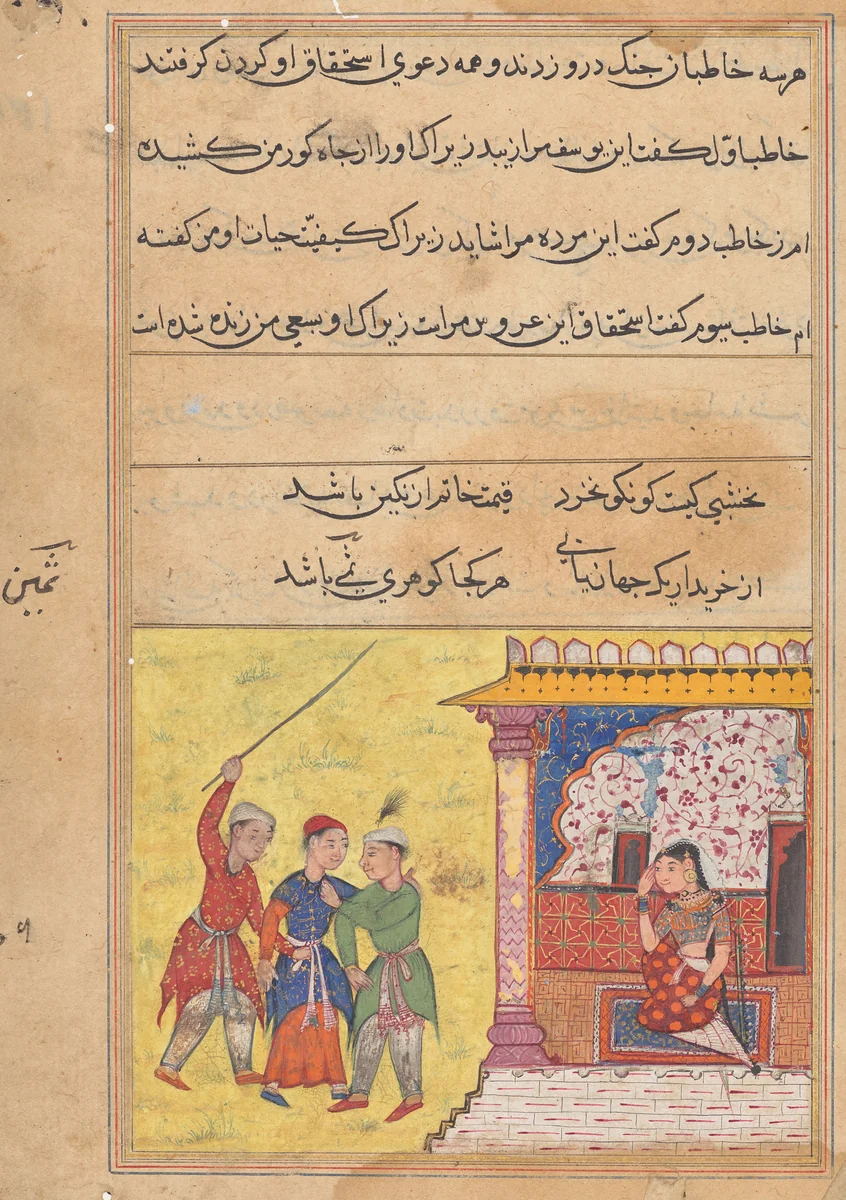 هر سه خاطبان جنک درو زدند و همه دعوي استحقاق او کردن کرفتند
خاطب اوّل کفت این یوسف مرا زیبد زیراک او را از جاه کور من کشیده
ام ز خاطب دوم کفت این مرده مرا شاید زیراک کیفیّت حیات او من کفته
ام خاطب سیوم کفت استحقاق این عروس مراست زیراک او بسعی من زنده شده است
نخشبي کیست کو نکو نخرد قیمت خاتم از نکین باشد
از خریدار یک جهان یابي هر کجا کوهري باشد
ثمین